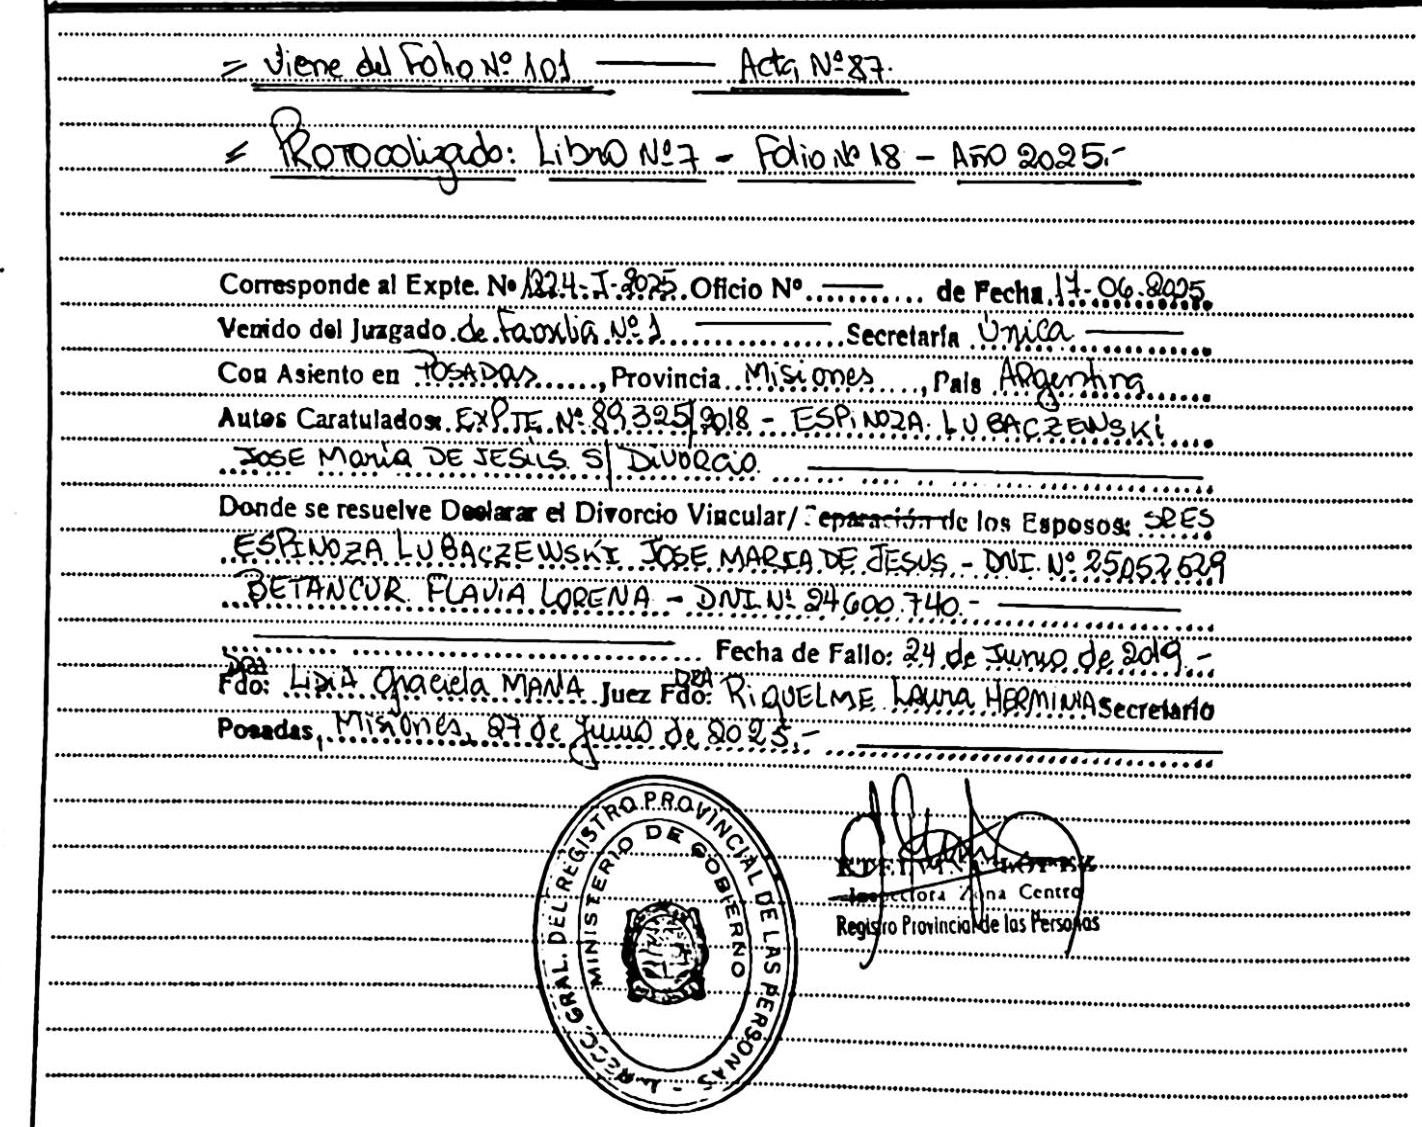 = Viene del Folio Nº 101 ——— Acta Nº 87.
= Protocolizado: Libro Nº 7 - Folio Nº 18 - Año 2025.-
Corresponde al Expte. Nº 1224-I-2025. Oficio Nº ........ de Fecha 17-06-2025
Venido del Juzgado de Familia Nº 1 ——— Secretaría Única ———
Con Asiento en POSADAS......, Provincia Misiones ...., País Argentina
Autos Caratulados: EXPTE Nº 89325/2018 - ESPINOZA LUBACZEWSKI
JOSE María DE JESÚS S/ DIVORCIO. ———
Donde se resuelve Declarar el Divorcio Vincular/ Separación de los Esposos: SRES
ESPINOZA LUBACZEWSKI JOSE MARIA DE JESUS - DNI. Nº 25.052.629
BETANCUR FLAVIA LORENA - DNI Nº 24.600.740.- ———
——— Fecha de Fallo: 24 de Junio de 2019.-
Fdo: DRA LIDIA Graciela MANA Juez Fdo: DRA RIQUELME Laura HERMINIA Secretario
Posadas, Misiones, 27 de Junio de 2025,- ———
DIRECC. GRAL. DEL REGISTRO PROVINCIAL DE LAS PERSONAS
MINISTERIO DE GOBIERNO
Inspectora Zona Centro
Registro Provincial de las Personas